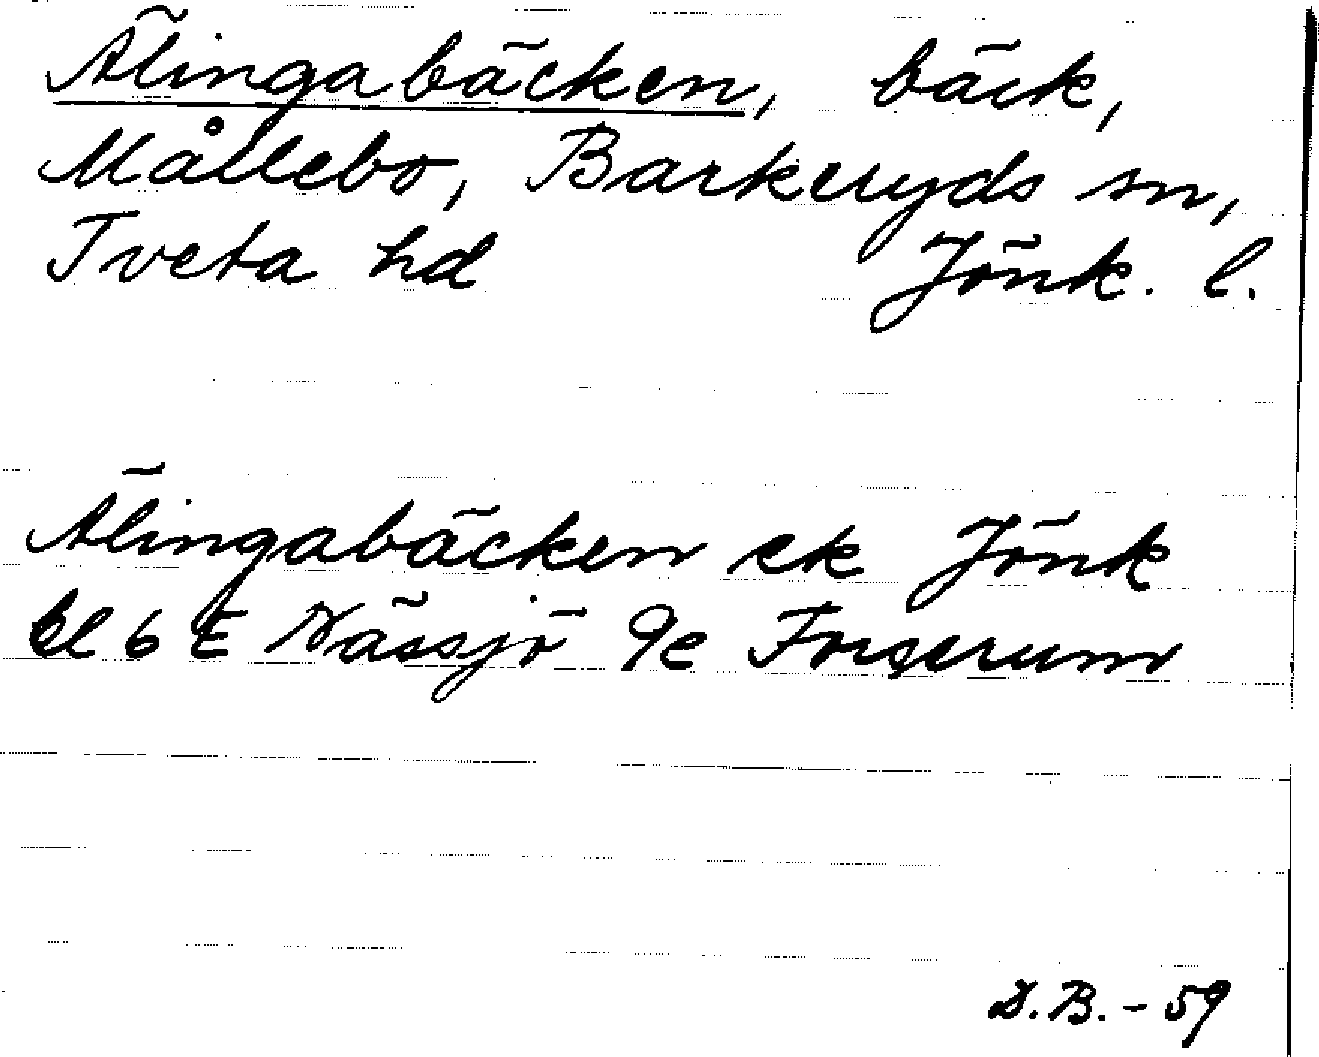 Älingabäcken, bäck,
Mållebo, Barkeryds sn,
Tveta hd Jönk. l.
Älingabäcken ek Jönk
bl 6 E Nässjö 9e Forserum
D.B. - 59